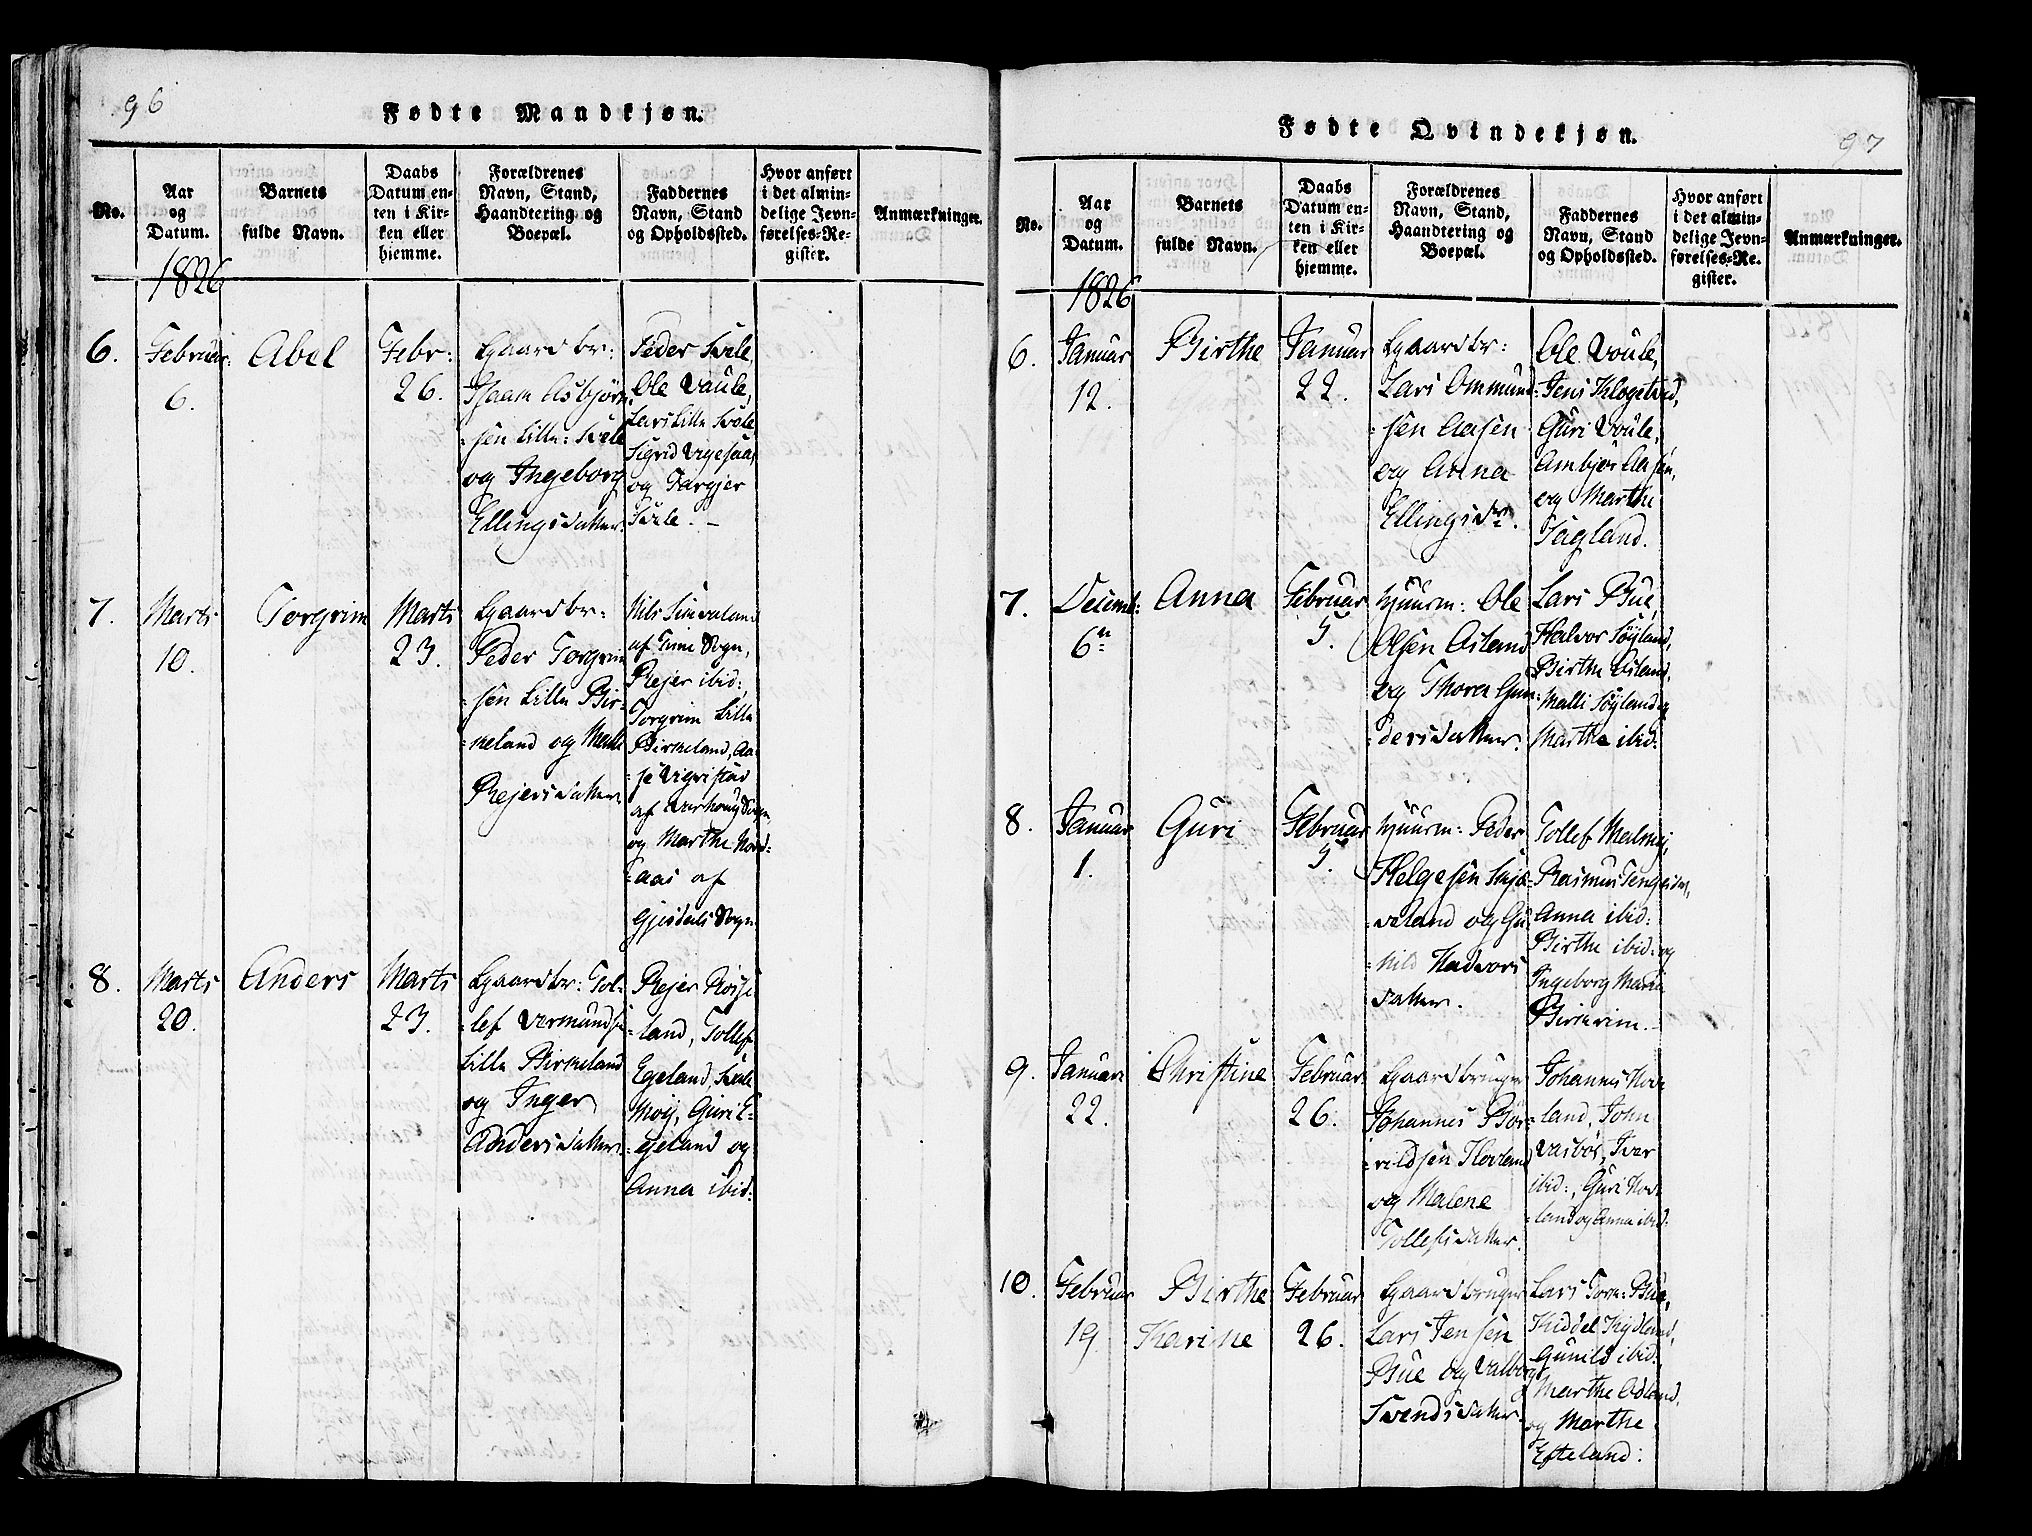 96
Fødte Mandkjøn.
No.
Aar
og
Datum.
Barnets
fulde Navn.
Daabs
Datum en-
ten i Kir-
ken eller
hjemme.
Forældrenes
Navn, Stand,
Haandtering og
Boepæl.
Faddernes
Navn, Stand
og Opholdssted.
Hvor anført
i det almin-
delige Jevn-
førelses-Re-
gister.
Anmærkninger.
1826
6.
Februar:
6.
Abel
Febr:
26.
Gaardbr:
Isaak Asbjörn
-sen Lille: Svele
og Ingeborg
Ellingsdatter.
Peder Svele,
Ole Voule,
Lars Lille Svele
Sigrid Vigesaa,
og Torgjer
Svele. –
7.
Marts
10.
Torgrim
Marts
23.
Gaardbr:
Peder Torgrim
-sen Lille Bir-
-keland og Malli
Rejersdatter
Nils
af Time Sogn,
Rejer ibid:,
Torgrim Lille
Birkeland, Aa-
-se Vigrestad
af Varhoug Sogn,
og Marthe Nord-
-aas af
Gjesdals Sogn.
8.
Marts
20.
Anders
Marts
23.
Gaardbr: Tol-
-lef Vermundse
Lille Birkeland
og Inger
Andersdatter.
Rejer Røise-
-land, Tollef
Egeland, Svale
Moij, Guri E-
-geland og
Anna ibid:
Fødte Qvindekjøn.
97
No.
Aar
og
Datum.
Barnets
fulde Navn.
Daabs
Datum en-
ten i Kir-
ken eller
hjemme.
Forældrenes
Navn, Stand,
Haandtering og
Boepæl.
Faddernes
Navn, Stand
og Opholdssted.
Hvor anført
i det almin-
delige Jevn-
førelses-Re-
gister.
Anmærkninger.
1826
6.
Januar
12.
Birthe
Januar
22.
Gaardbr:
Lars Ommund-
-sen Aasen
og Anna
Ellingsdr.
Ole Voule,
Jens Klogetved,
Guri Voule,
Ambjør Aasen,
og Marthe
Fagland.
7.
Decemb:
6te
Anna
Februar
5.
Huusm: Ole
Olsen Osland
og Thora Gun-
-dersdatter.
Lars Bue,
Halvor Söyland,
Birthe Osland,
Malli Söyland og
Marthe ibid:
8.
Januar
1.
Guri
Februar
5.
Huusm: Peder
Helgesen Skjæ-
-veland og Gu-
-nild Hadvors
datter.
Tollef Malmej,
Rasmus Tengesdal,
Anna ibid:
Birthe ibid: og
Ingeborg Maria
Birkrim. –
9.
Januari
22.
Christine
Februar
26.
Gaardbruger
Johannes Bor-
-vildsen Hovland
og Malene
Tollefsdatter.
Johannes Hov-
-land, John
Vasbø, Ivar
ibid:, Guri Hov-
-land og Anna ibid:
10.
Februar
19.
Birthe
Karine
Februar
26.
Gaardbruger
Lars Jensen
Bue og Valborg
Svendsdatter.
Lars Torn: Bue,
Kiddel Kydland,
Gunild ibid:
Marthe Odland,
og Marthe
Efteland: